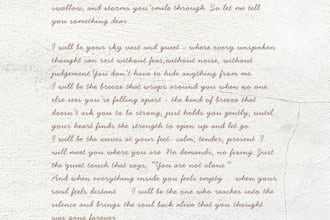 swallow, and storms you smile through. So let me tell
you something dear.
I will be your sky vast and quiet - where every unspoken
thought can rest without fear,without noise, without
judgement.You don't have to hide anything from me.
I will be the breeze that wraps around you when no one
else sees you're falling apart - the kind of breeze that
doesn't ask you to be strong, just holds you gently, until
your heart finds the strength to open up and let go.
I will be the waves at your feet- calm, tender, present. I
will meet you where you are. No demands, no fixing. Just
the quiet touch that says, "You are not alone."
And when everything inside you feels empty - when your
soul feels distant - I will be the one who reaches into the
silence and brings the soul back alive that you thought
was gone forever.